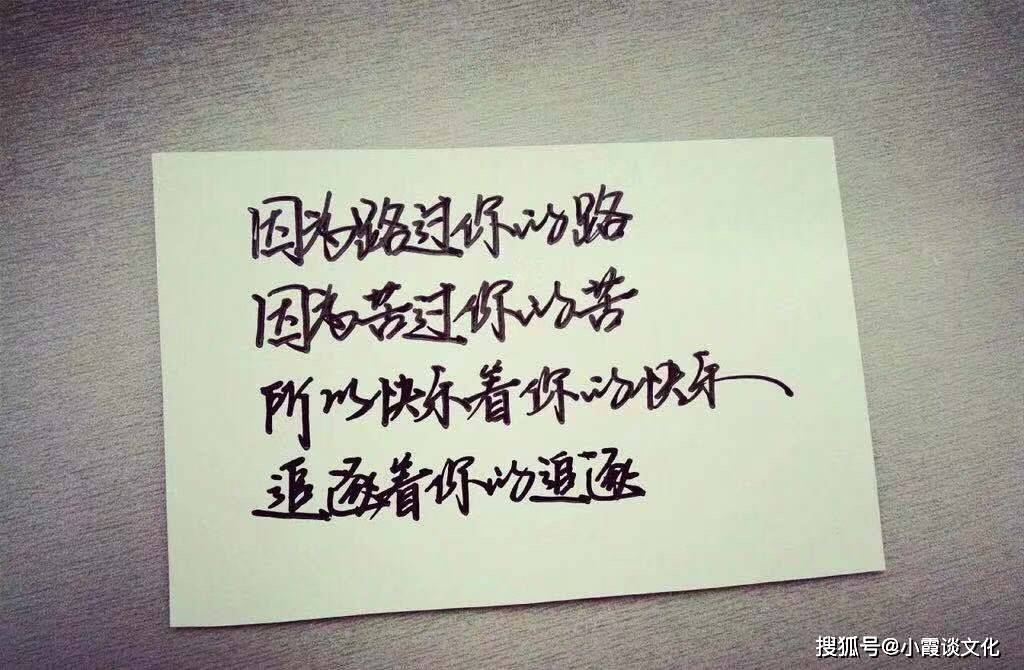 因为路过你的路
因为苦过你的苦
所以快乐着你的快乐
追逐着你的追逐
搜狐号@小霞谈文化